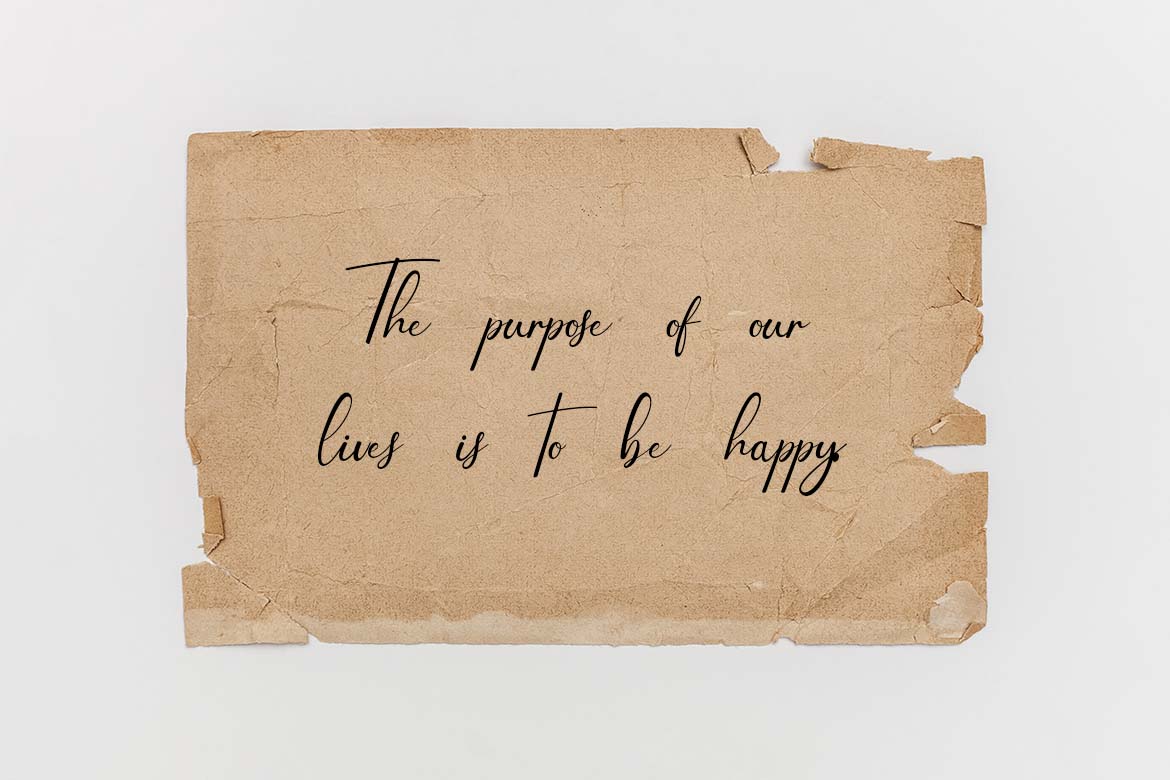 The purpose of our
lives is to be happy.